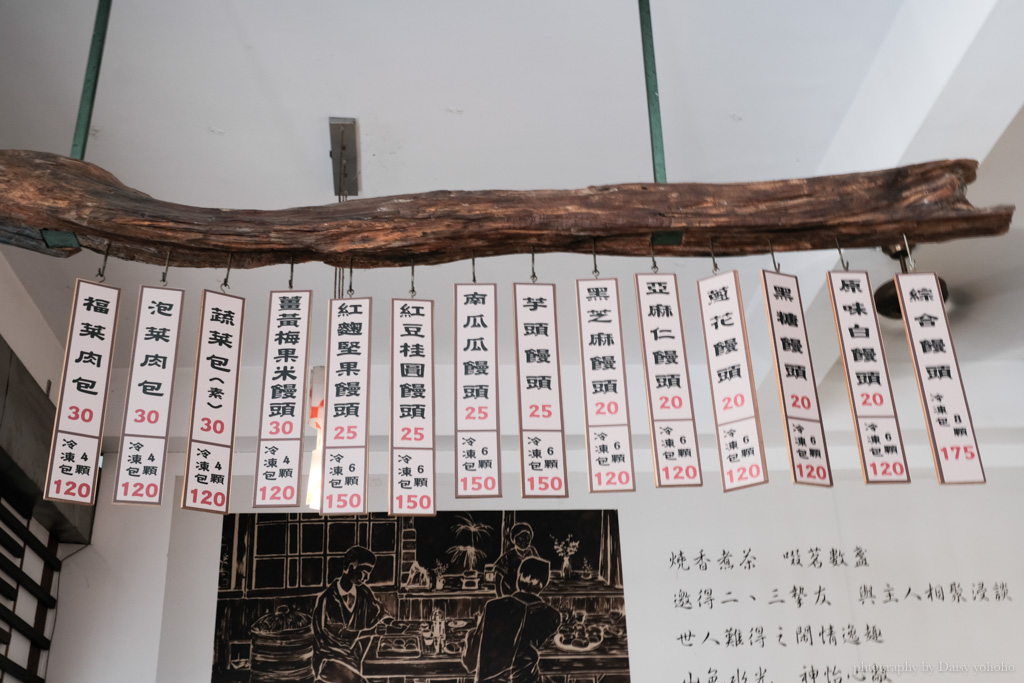 福菜肉包 30
冷凍包 4顆 120
泡菜肉包 30
冷凍包 4顆 120
蔬菜包(素) 30
冷凍包 4顆 120
薑黃梅果米饅頭 30
冷凍包 4顆 120
紅麴堅果饅頭 25
冷凍包 6顆 150
紅豆桂圓饅頭 25
冷凍包 6顆 150
南瓜瓜饅頭 25
冷凍包 6顆 150
芋頭饅頭 25
冷凍包 6顆 150
黑芝麻饅頭 20
冷凍包 6顆 120
亞麻仁饅頭 20
冷凍包 6顆 120
蔥花饅頭 20
冷凍包 6顆 120
黑糖饅頭 20
冷凍包 6顆 120
原味白饅頭 20
冷凍包 6顆 120
綜合饅頭
冷凍包 8顆 175
燒香煮茶 啜茗數盞
邀得二、三摯友 與主人相聚漫談
世人難得之閒情逸趣
山色水光 神怡心
photography by Daisy yohoho